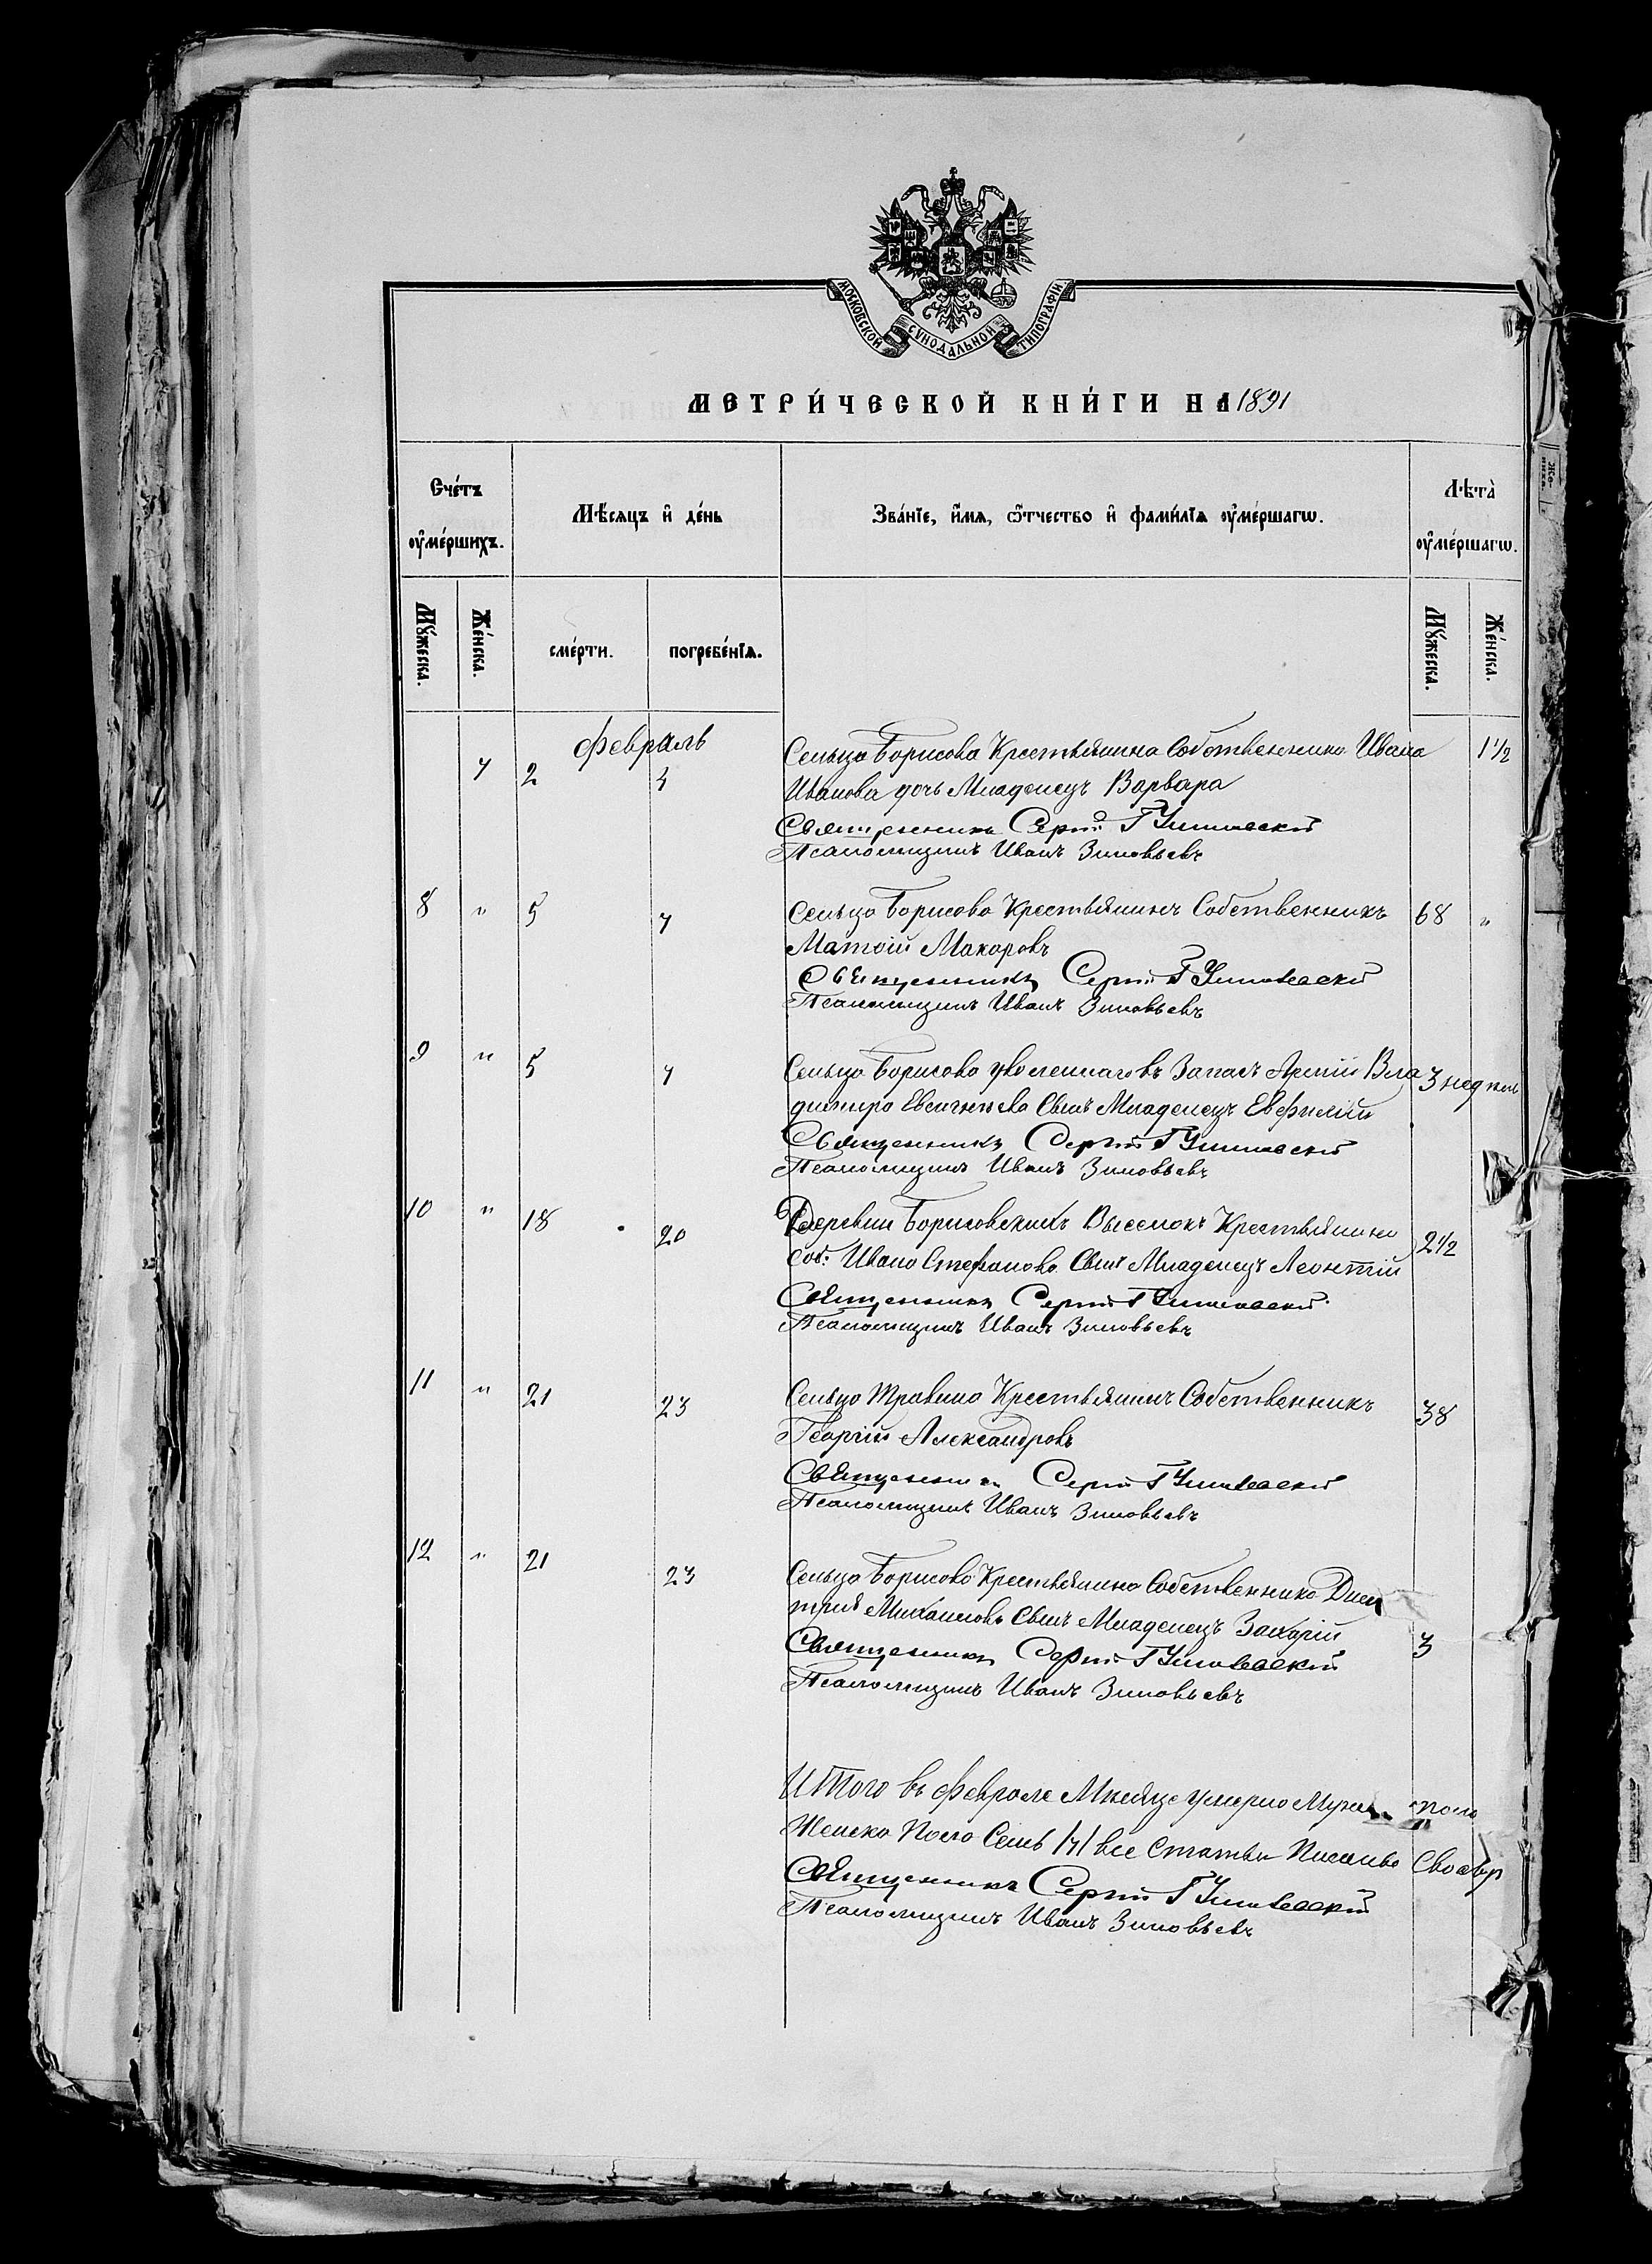 МОСКОВСКОЙ СѴНОДАЛЬНОЙ ТИПОГРАФІИ
МЕТРИ́ЧЕСКОЙ КНИ́ГИ НА 1891
Счётъ ᲂумершихъ.
Мѣсяцъ и де́нь
Зва́нїе, и҆́мя, ѻ҆́тчество и҆ фами́лїя ᲂу҆ме́ршагѡ.
Лѣта̀ ᲂу҆ме́ршагѡ.
Мꙋ́жеска.
Же́нска.
сме́рти.
погребе́нїѧ.
Мꙋ́жеска.
Же́нска.
Февраль
7 2 4 Сельцо Борисова Крестьянина Собственника Ивана 1½
Иванова дочь Младенецъ Варвара
Священникъ Сергій
Псаломщикъ Иванъ Зиновьевъ
8 " 5 7 Сельцо Борисово Крестьянинъ Собственникъ 68 "
Матөій Макаровъ
Священникъ Сергій
Псаломщикъ Иванъ Зиновьевъ
9 " 5 7 Сельцо Борисово уволеннаго въ Запасъ Арміи Вла 3 недели
димира Сынъ Младенецъ Евфимій
Священникъ Сергій
Псаломщикъ Иванъ Зиновьевъ
10 " 18 20 Деревни Борисовскихъ Выселокъ Крестьянина
соб: Ивана Стефанова Сынъ Младенецъ Леонтій 2½
Священникъ Сергій
Псаломщикъ Иванъ Зиновьевъ
11 " 21 23 Сельцо Травино Крестьянинъ Собственникъ 38
Георгій Александровъ
Священникъ Сергій
Псаломщикъ Иванъ Зиновьевъ
12 " 21 23 Сельцо Борисово Крестьянина Собственника Дим
трія Михаилова Сынъ Младенецъ Захарій 3
Священникъ Сергій
Псаломщикъ Иванъ Зиновьевъ
Итого въ Феврале Мнсяце умерло пола
Женска Пола Семь /7/ все Статьи
Священникъ Сергій
Псаломщикъ Иванъ Зиновьевъ